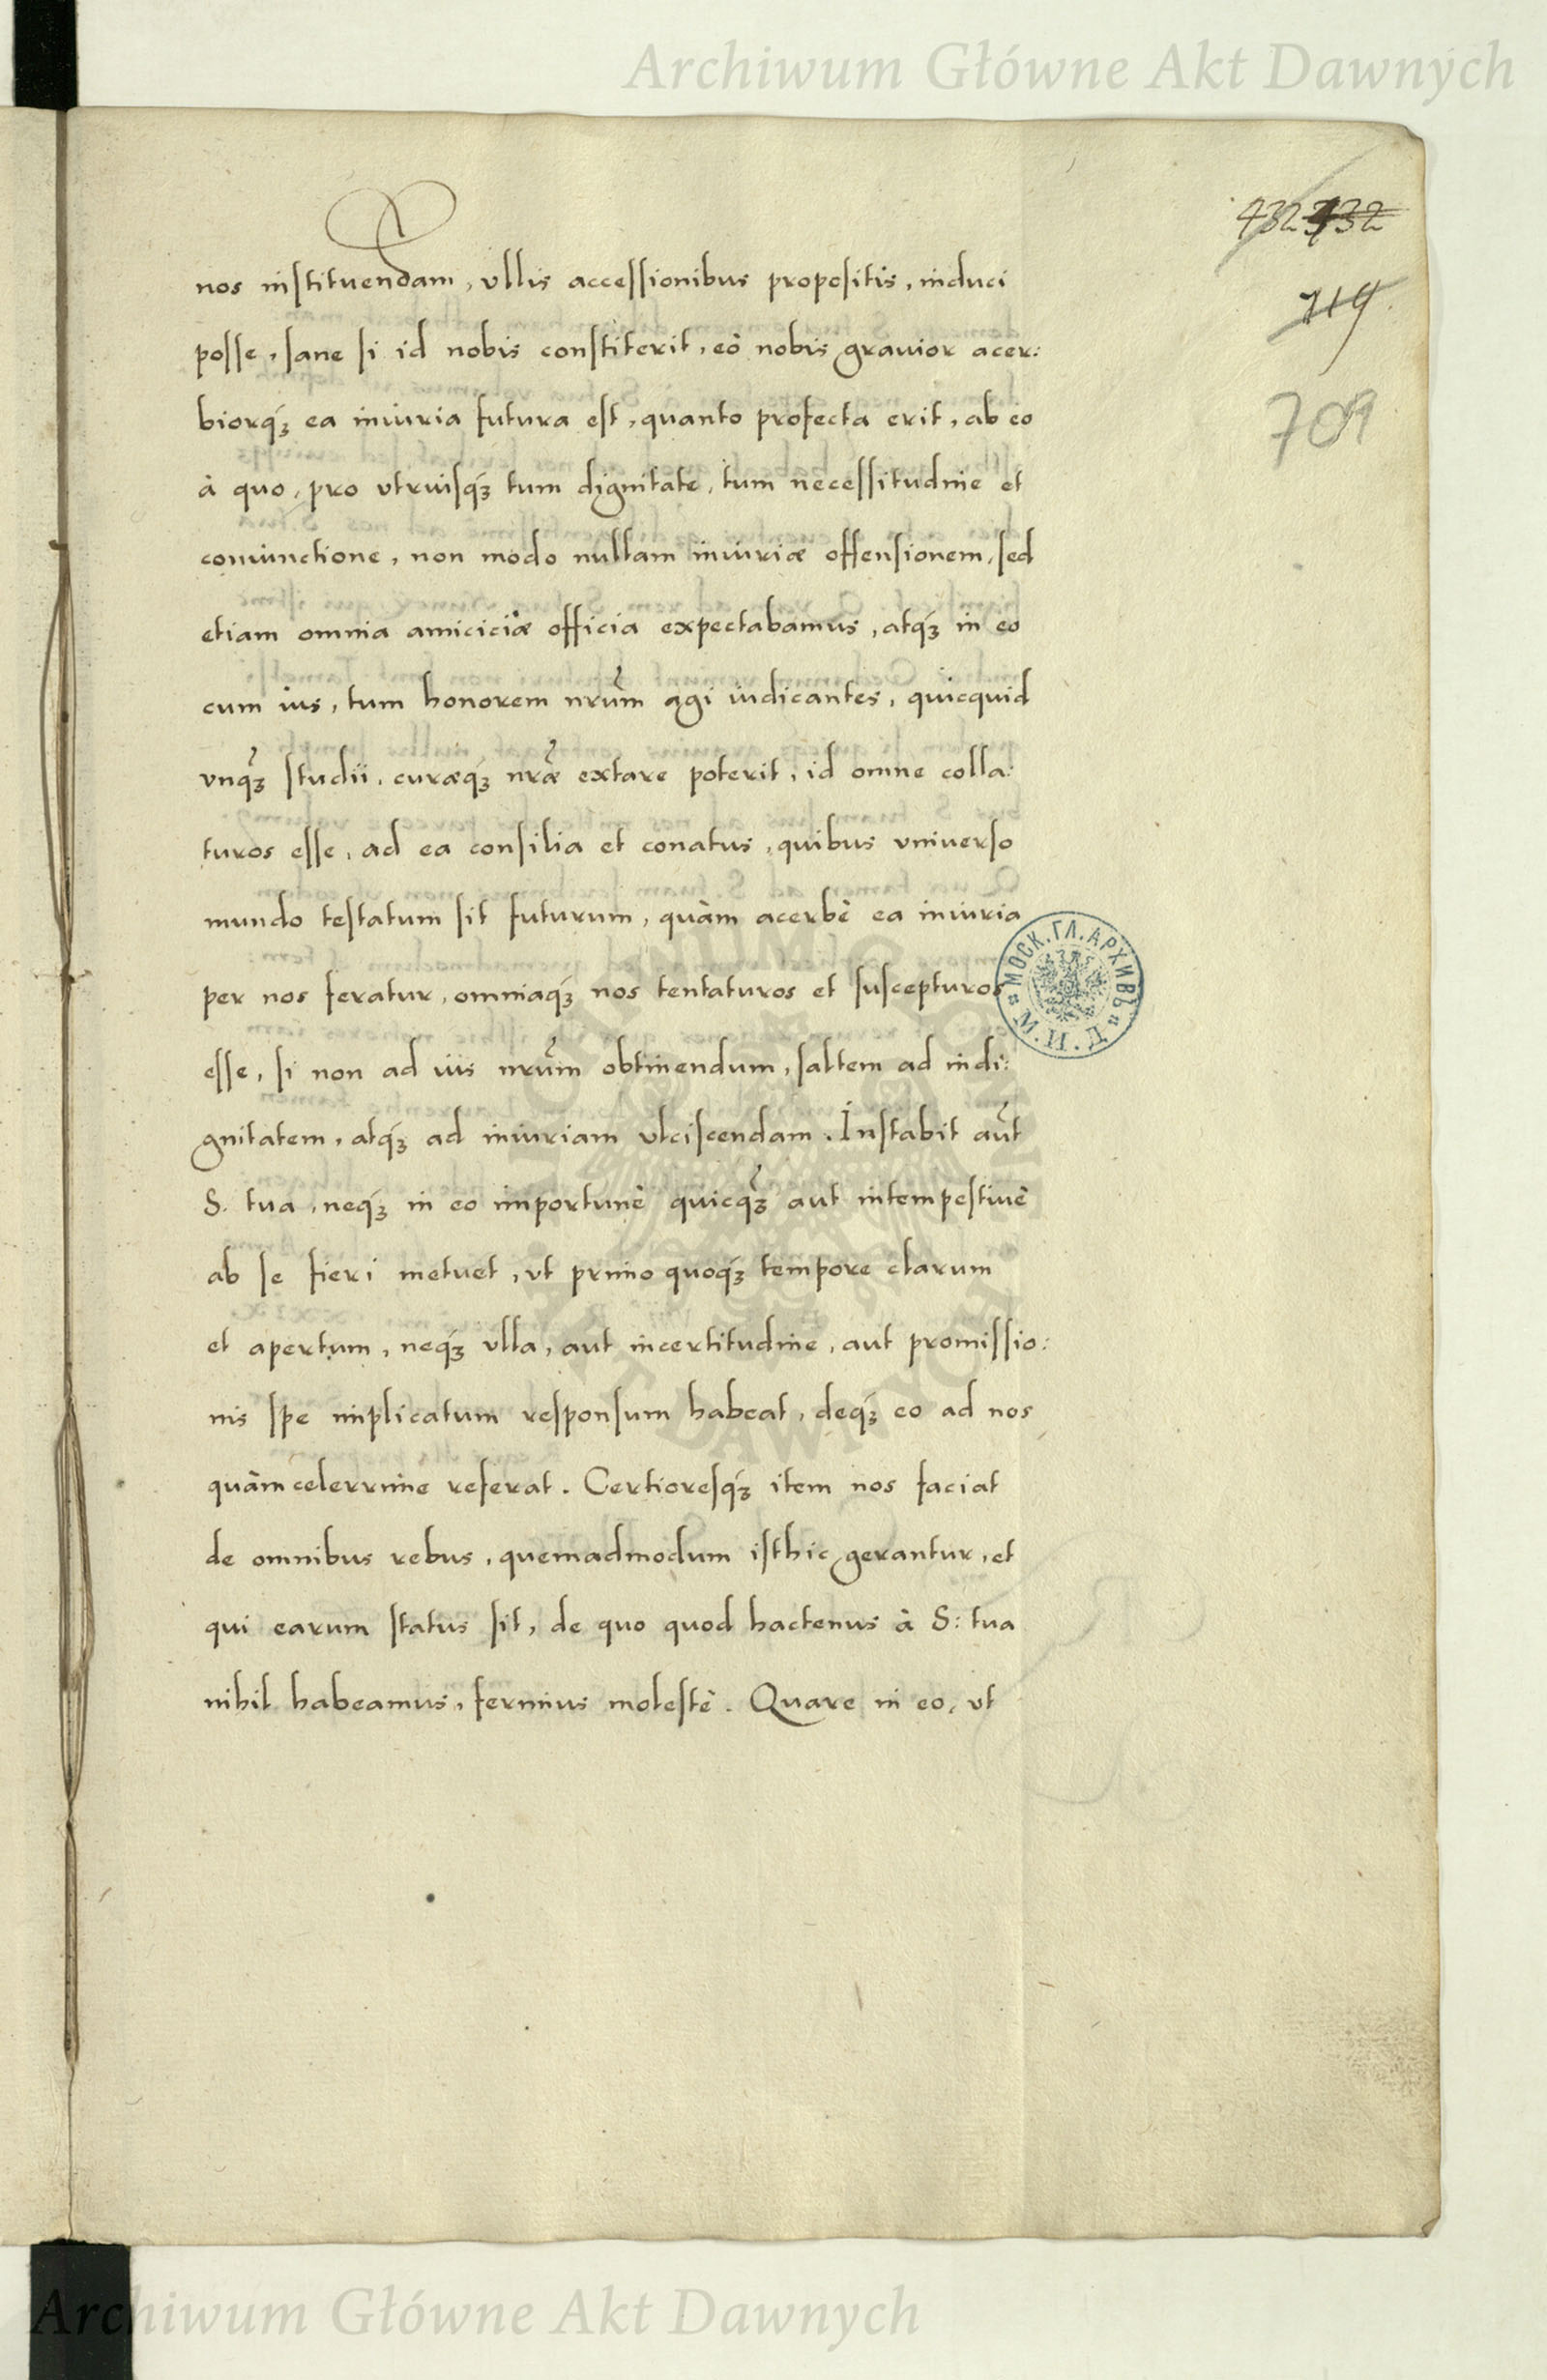 Archiwum Główne Akt Dawnych
432 432
719
709
nos instituendam, ullis accessionibus propositis, induci
posse, sane si id nobis constiterit, eò nobis grauior acer:
biorq́ꝫ ea iniuria futura est, quanto profecta erit, ab eo
à quo, pro vtriusq́ꝫ tum dignitate, tum necessitudine et
coniunctione, non modo nullam iniuriæ offensionem, sed
etiam omnia amiciciæ officia expectabamus, atq́ꝫ in eo
cum ius, tum honorem nr̃um agi iudicantes, quicquid
vnq̃ꝫ studii, curæq́ꝫ nr̃æ extare poterit, id omne colla:
turos esse, ad ea consilia et conatus, quibus vniuerso
mundo testatum sit futurum, quàm acerbè ea iniuria
per nos feratur, omniaq́ꝫ nos tentaturos et suscepturos
esse, si non ad ius nr̃um obtinendum, saltem ad indi:
gnitatem, atq́ꝫ ad iniuriam vlciscendam. Instabit aũt
S. tua, neq́ꝫ in eo importunè quicq̃ꝫ aut intempestiuè
ab se fieri metuet, vt primo quoq́ꝫ tempore clarum
et apertum, neq́ꝫ vlla, aut incertitudine, aut promissio:
nis spe implicatum responsum habeat, deq́ꝫ eo ad nos
quàm celerrime referat. Certioresq́ꝫ item nos faciat
de omnibus rebus, quemadmodum isthic gerantur, et
qui earum status sit, de quo quod hactenus à S: tua
nihil habeamus, ferimus molestè. Quare in eo, vt
МОСК. ГЛ. АРХИВЪ
М. И. Д.
Archiwum Główne Akt Dawnych